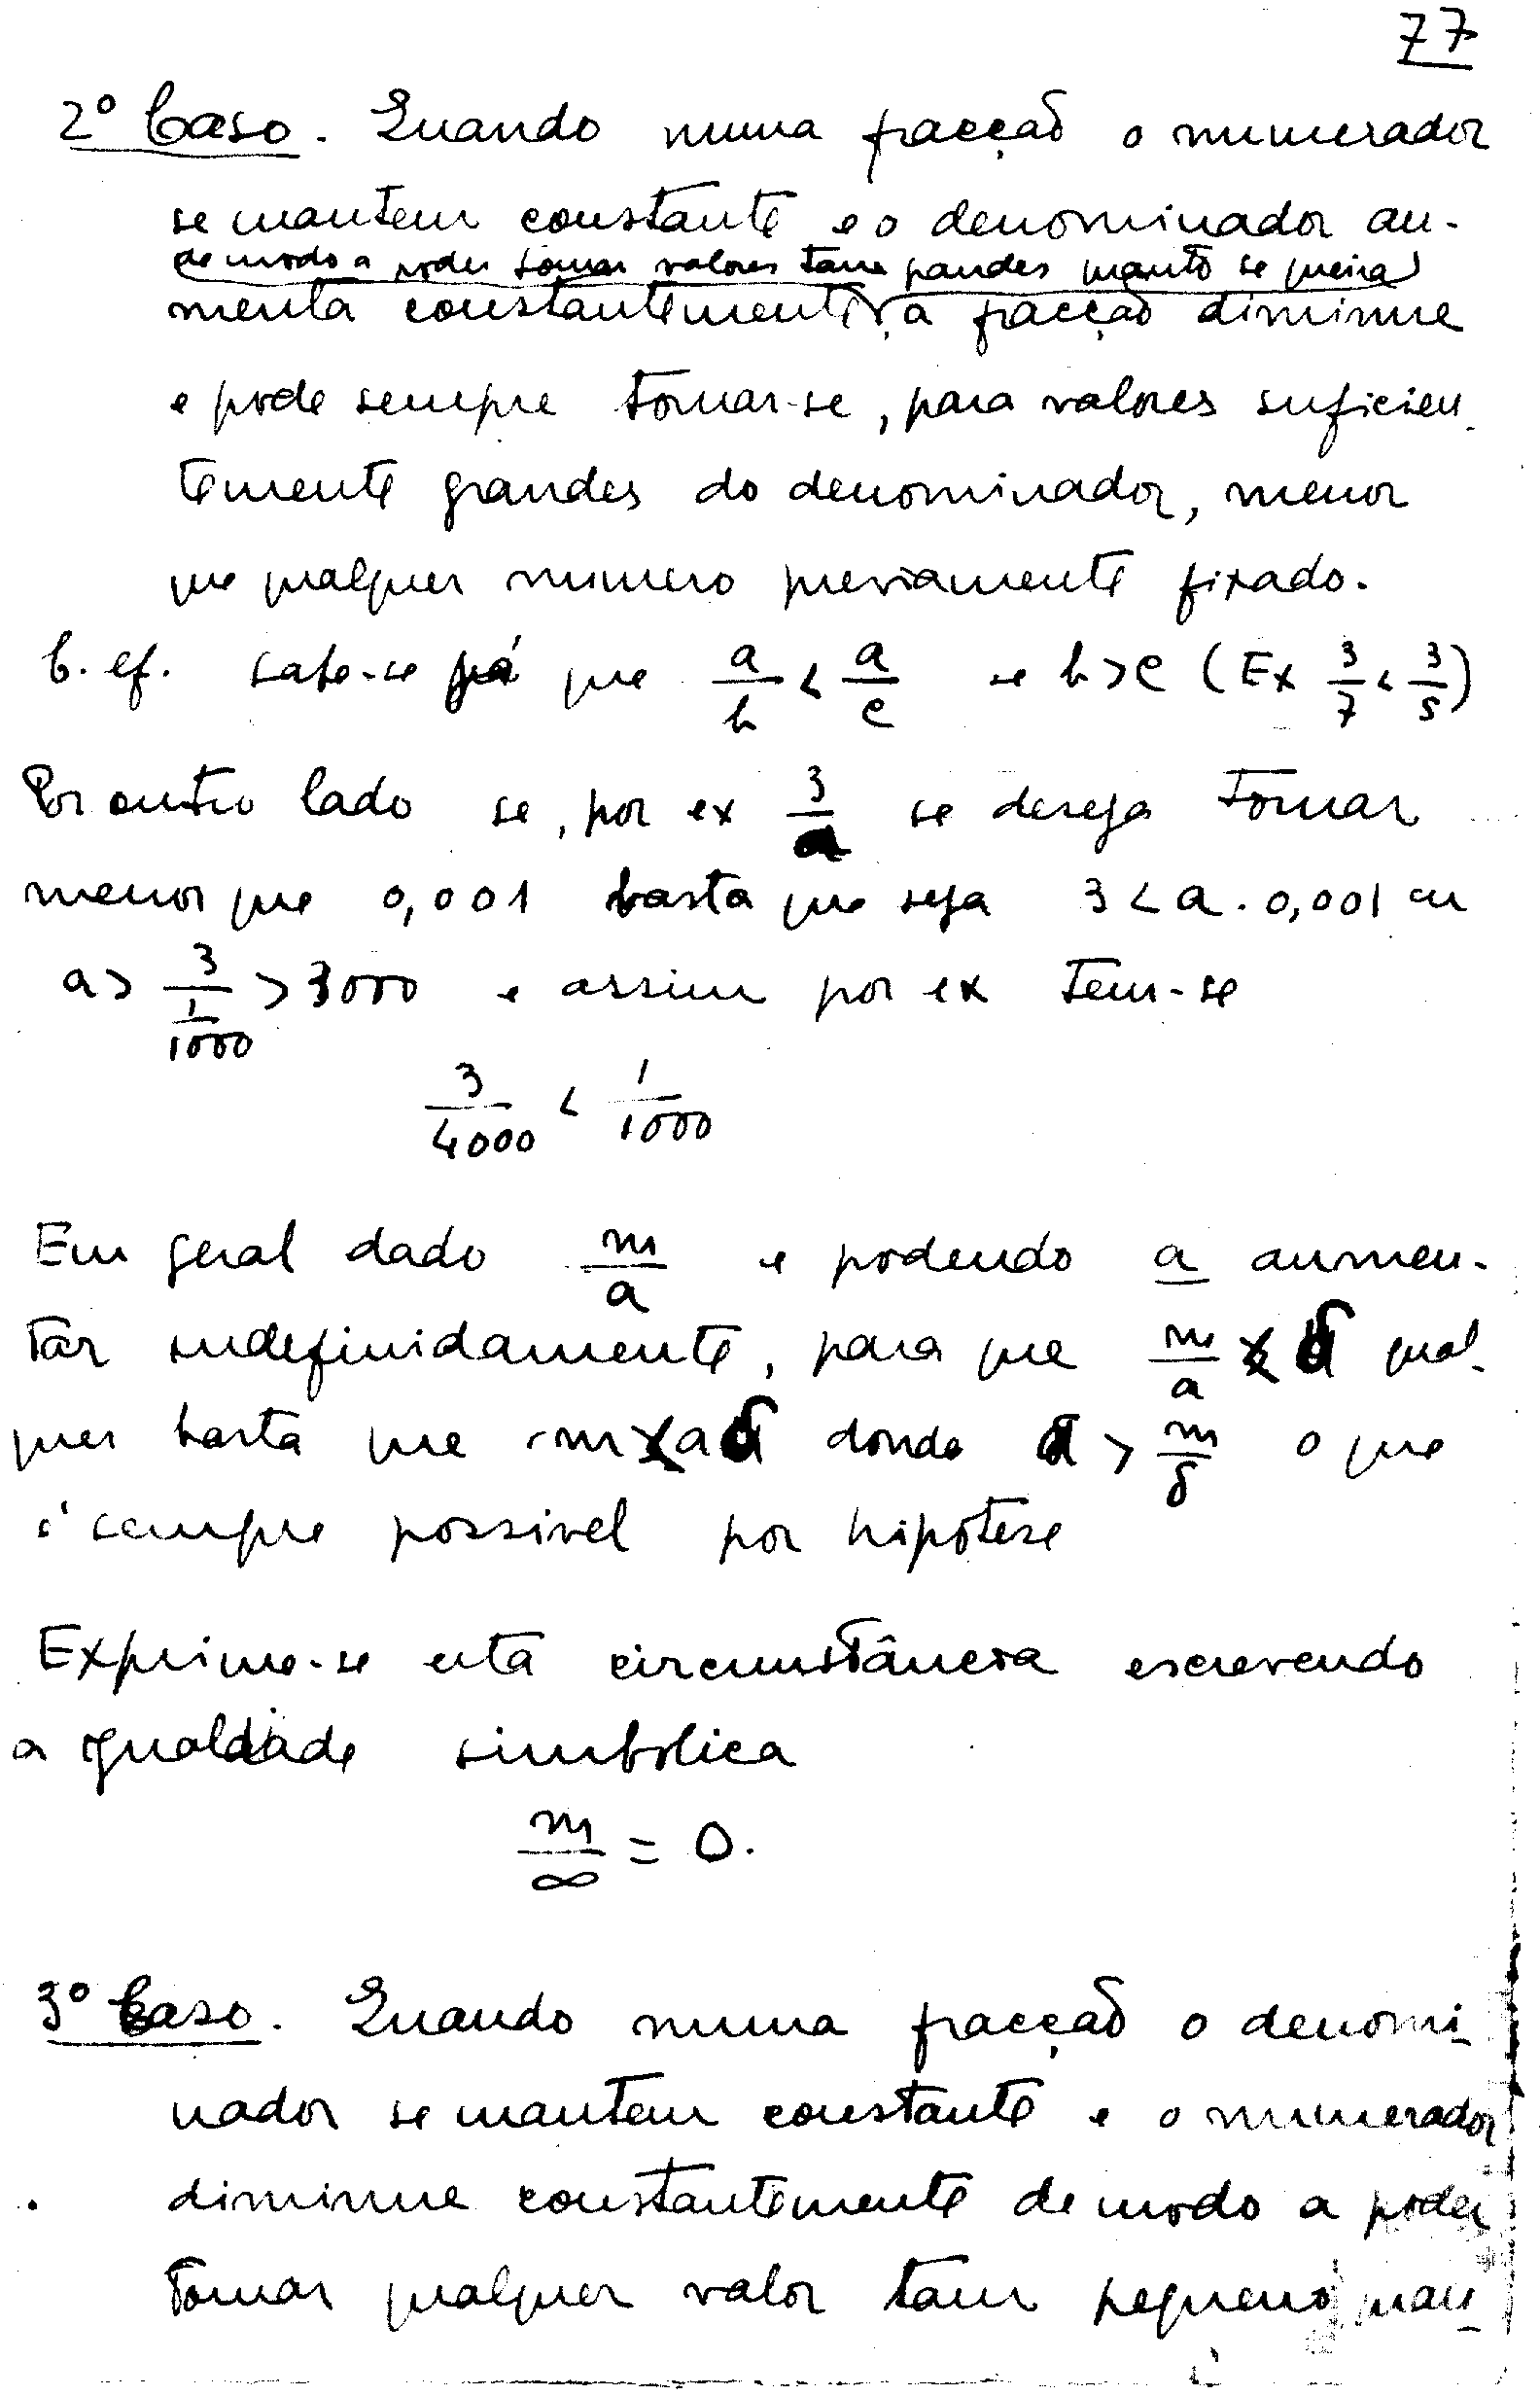 77
2º Caso. Quando numa fracção o numerador
se mantem constante e o denominador au-
de modo a poder tomar valores tam grandes quanto se queira
menta constantemente, a fracção diminue
e pode sempre tornar-se, para valores suficien-
temente grandes do denominador, menor
que qualquer numero previamente fixado.
C. ef. sabe-se já que a/b < a/c se b > c (Ex 3/7 < 3/5)
Por outro lado se, por ex 3/a se deseja tornar
menor que 0,001 basta que seja 3 < a . 0,001 ou
a > 3/(1/1000) > 3000 e assim por ex tem-se
3/4000 < 1/1000
Em geral dado m/a e podendo a aumen-
tar indefinidamente, para que m/a < δ qual-
quer basta que m < aδ donde a > m/δ o que
é sempre possivel por hipótese
Exprime-se esta circunstância escrevendo
a igualdade simbolica
m/∞ = 0.
3º Caso. Quando numa fracção o denomi-
nador se mantem constante e o numerador
diminue constantemente de modo a poder
tomar qualquer valor tam pequeno quan-